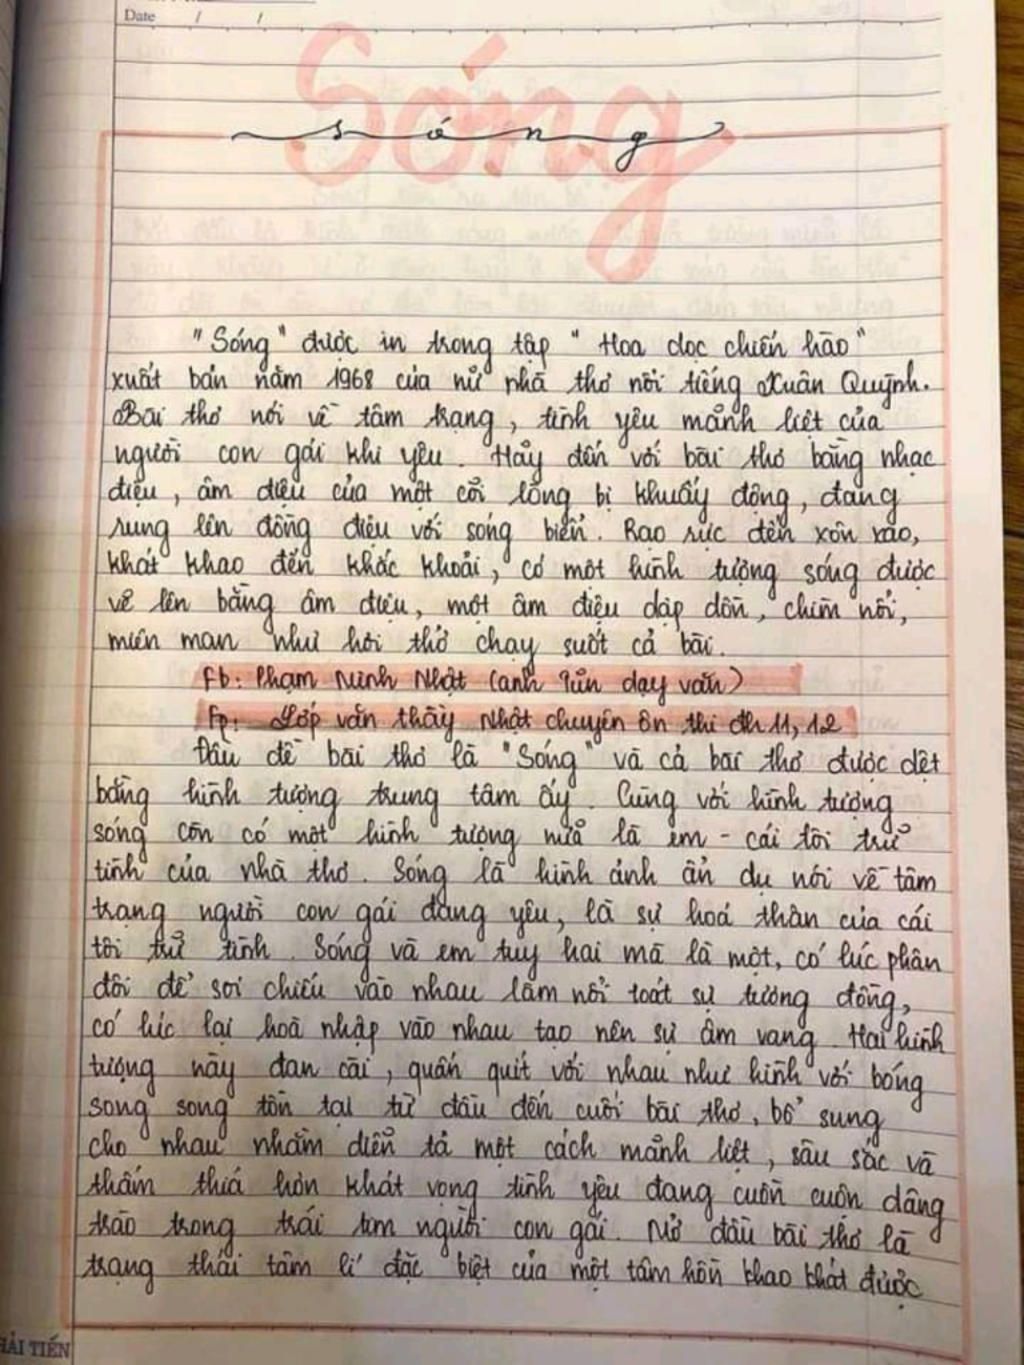 Date / /
Sóng
sóng
"Sóng" được in trong tập "Hoa dọc chiến hào"
xuất bản năm 1968 của nữ nhà thơ nổi tiếng Xuân Quỳnh.
Bài thơ nói về tâm trạng, tình yêu mãnh liệt của
người con gái khi yêu. Hãy đến với bài thơ bằng nhạc
điệu, âm điệu của một cõi lòng bị khuấy động, đang
rung lên đồng điệu với sóng biển. Rạo rực đến xôn xao,
khát khao đến khắc khoải, có một hình tượng sóng được
vẽ lên bằng âm điệu, một âm điệu dập dồn, chìm nổi,
miên man như hơi thở chạy suốt cả bài.
Fb: Phạm Minh Nhật (anh Tủn dạy văn)
Fp: Lớp văn thầy Nhật chuyên ôn thi ĐH 11, 12
Đầu đề bài thơ là "Sóng" và cả bài thơ được dệt
bằng hình tượng trung tâm ấy. Cùng với hình tượng
sóng còn có một hình tượng nữa là em - cái tôi trữ
tình của nhà thơ. Sóng là hình ảnh ẩn dụ nói về tâm
trạng người con gái đang yêu, là sự hoá thân của cái
tôi trữ tình. Sóng và em tuy hai mà là một, có lúc phân
đôi để soi chiếu vào nhau làm nổi toát sự tương đồng,
có lúc lại hoà nhập vào nhau tạo nên sự âm vang. Hai hình
tượng này đan cài, quấn quít với nhau như hình với bóng
song song tồn tại từ đầu đến cuối bài thơ, bổ sung
cho nhau nhằm diễn tả một cách mãnh liệt, sâu sắc và
thấm thía hơn khát vọng tình yêu đang cuồn cuộn dâng
trào trong trái tim người con gái. Mở đầu bài thơ là
trạng thái tâm lí đặc biệt của một tâm hồn khao khát được
HẢI TIẾN